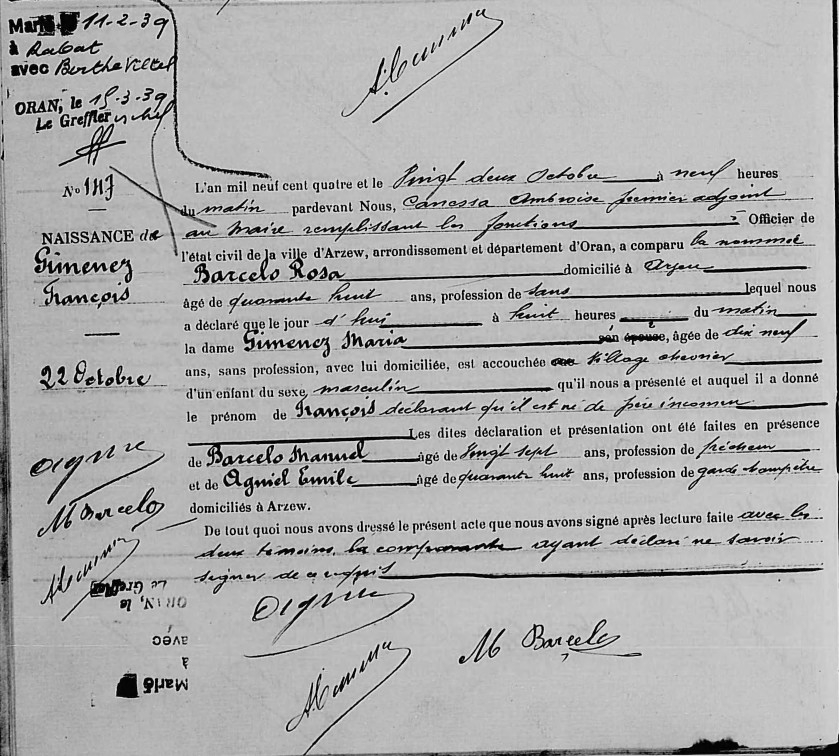 Marié le 11-2-39
à Rabat
avec Berthe
ORAN, le 15-3-39
Le Greffier
No 147
NAISSANCE de
Gimenez
François
22 Octobre
L'an mil neuf cent quatre et le Vingt deux Octobre à neuf heures
du matin pardevant Nous, Canessa Ambroise premier adjoint
au Maire remplissant les fonctions Officier de
l'état civil de la ville d'Arzew, arrondissement et département d'Oran, a comparu la nommée
Barcelo Rosa domicilié à Arzew
âgé de quarante huit ans, profession de sans lequel nous
a déclaré que le jour d'hui à huit heures du matin
la dame Gimenez Maria son épouse, âgée de dix neuf
ans, sans profession, avec lui domiciliée, est accouchée au Village
d'un enfant du sexe masculin qu'il nous a présenté et auquel il a donné
le prénom de François déclarant qu'il est né de père inconnu
Les dites déclaration et présentation ont été faites en présence
de Barcelo Manuel âgé de Vingt sept ans, profession de pêcheur
et de Agniel Emile âgé de quarante huit ans, profession de garde champêtre
domiciliés à Arzew.
De tout quoi nous avons dressé le présent acte que nous avons signé après lecture faite avec les
deux témoins, la comparante ayant déclaré ne savoir
signer de ce requis
M Barcelo
M Barcelo
Le Greffier
ORAN, le
avec
à
Marié